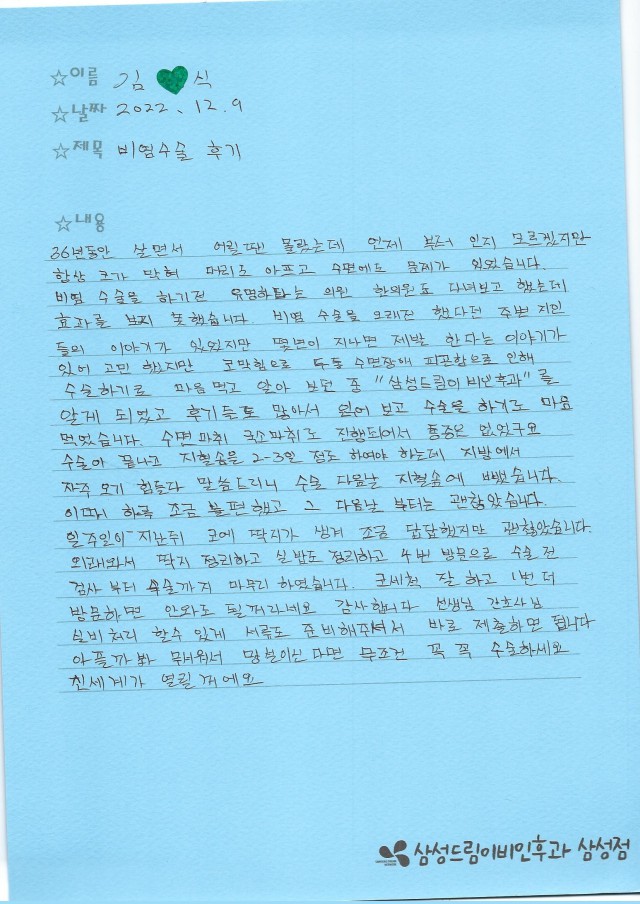 ☆이름 김 식
☆날짜 2022. 12. 9
☆제목 비염수술 후기
☆내용
36년동안 살면서 어릴땐 몰랐는데 언제 부터 인지 모르겠지만
항상 코가 막혀 머리도 아프고 수면에도 문제가 있었습니다.
비염 수술을 하기전 유명하다는 의원 한의원도 다녀보고 했는데
효과를 보지 못했습니다. 비염 수술을 오래전 했다던 주변 지인
들의 이야기가 있었지만 몇년이 지나면 재발 한다는 이야기가
있어 고민 했지만 코막힘으로 두통 수면장애 피곤함으로 인해
수술하기로 마음 먹고 알아 보던 중 "삼성드림이비인후과"를
알게 되었고 후기들도 많아서 읽어 보고 수술을 하기로 마음
먹었습니다. 수면마취 국소마취로 진행되어서 통증은 없었구요
수술이 끝나고 지혈솜을 2-3일 정도 하여야 하는데 지방에서
자주 오기 힘들다 말씀드리니 수술 다음날 지혈솜에 뺐습니다.
이때 하루 조금 불편했고 그 다음날 부터는 괜찮았습니다.
일주일이 지난뒤 코에 딱지가 생겨 조금 답답했지만 괜찮았습니다.
외래와서 딱지 정리하고 실밥도 정리하고 4번 방문으로 수술 전
검사 부터 수술까지 마무리 하였습니다. 코세척 잘 하고 1번 더
방문하면 안와도 될꺼라네요 감사합니다 선생님 간호사님
실비처리 할수 있게 서류도 준비해주셔서 바로 제출하면 됩니다
아플까봐 무서워서 망설이신다면 무조건 꼭 꼭 수술하세요
신세계가 열릴꺼에요
삼성드림이비인후과 삼성점